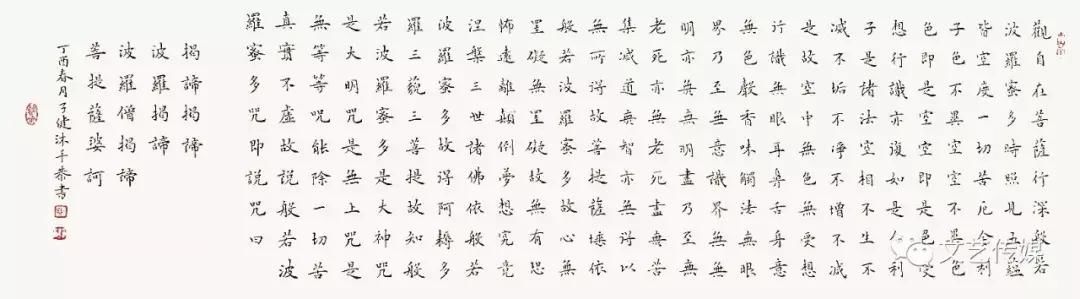 觀自在菩薩行深般若
波羅蜜多時照見五蘊
皆空度一切苦厄舍利
子色不異空空不異色
色即是空空即是色受
想行識亦復如是舍利
子是諸法空相不生不
减不垢不淨不增不减
是故空中無色無受想
行識無眼耳鼻舌身意
無色聲香味觸法無眼
界乃至無意識界無無
明亦無無明盡乃至無
老死亦無老死盡無苦
集减道無智亦無得以
無所得故菩提薩埵依
般若波羅蜜多故心無
罣礙無罣礙故無有恐
怖遠離顛倒夢想究竟
涅槃三世諸佛依般若
波羅蜜多故得阿耨多
羅三藐三菩提故知般
若波羅蜜多是大神咒
是大明咒是無上咒是
無等等咒能除一切苦
真實不虛故說般若波
羅蜜多咒即說咒曰
揭諦揭諦
波羅揭諦
波羅僧揭諦
菩提薩婆訶
丁酉春月子健沐手恭書
文艺传媒